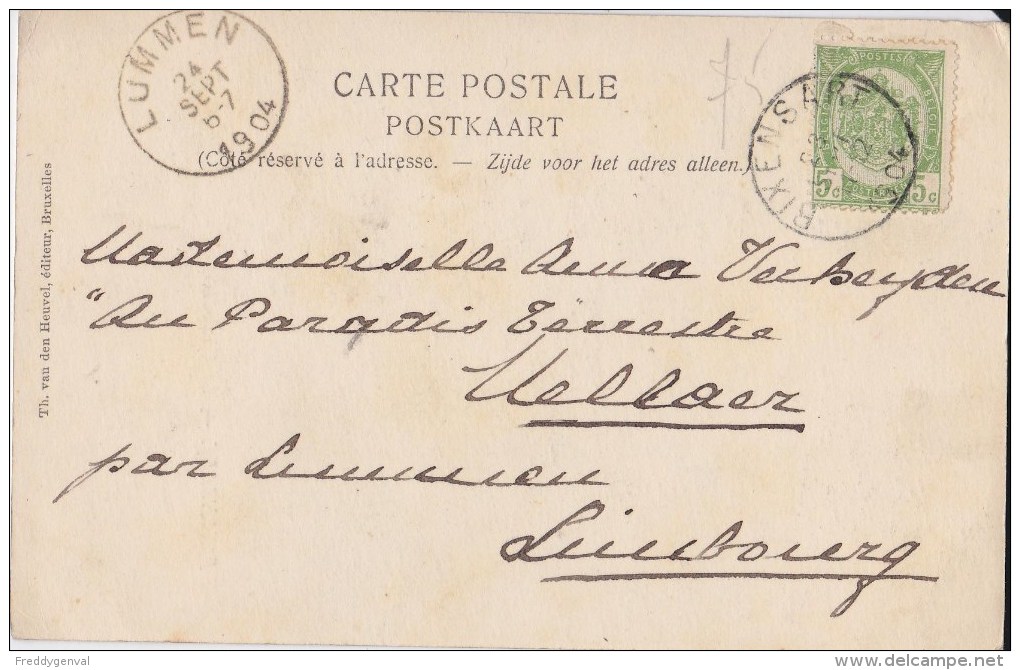 LUMMEN
24
SEPT
6-7
1904
75
CARTE POSTALE
POSTKAART
(Côté réservé à l'adresse. — Zijde voor het adres alleen.)
POSTES
5c 5c
RIXENSART
Th. van den Heuvel, éditeur, Bruxelles
Mademoiselle Anna Verheyden
"Au Paradis Terrestre
Mellaer
par Lummen
Limbourg
Freddygenval
delcampe.net